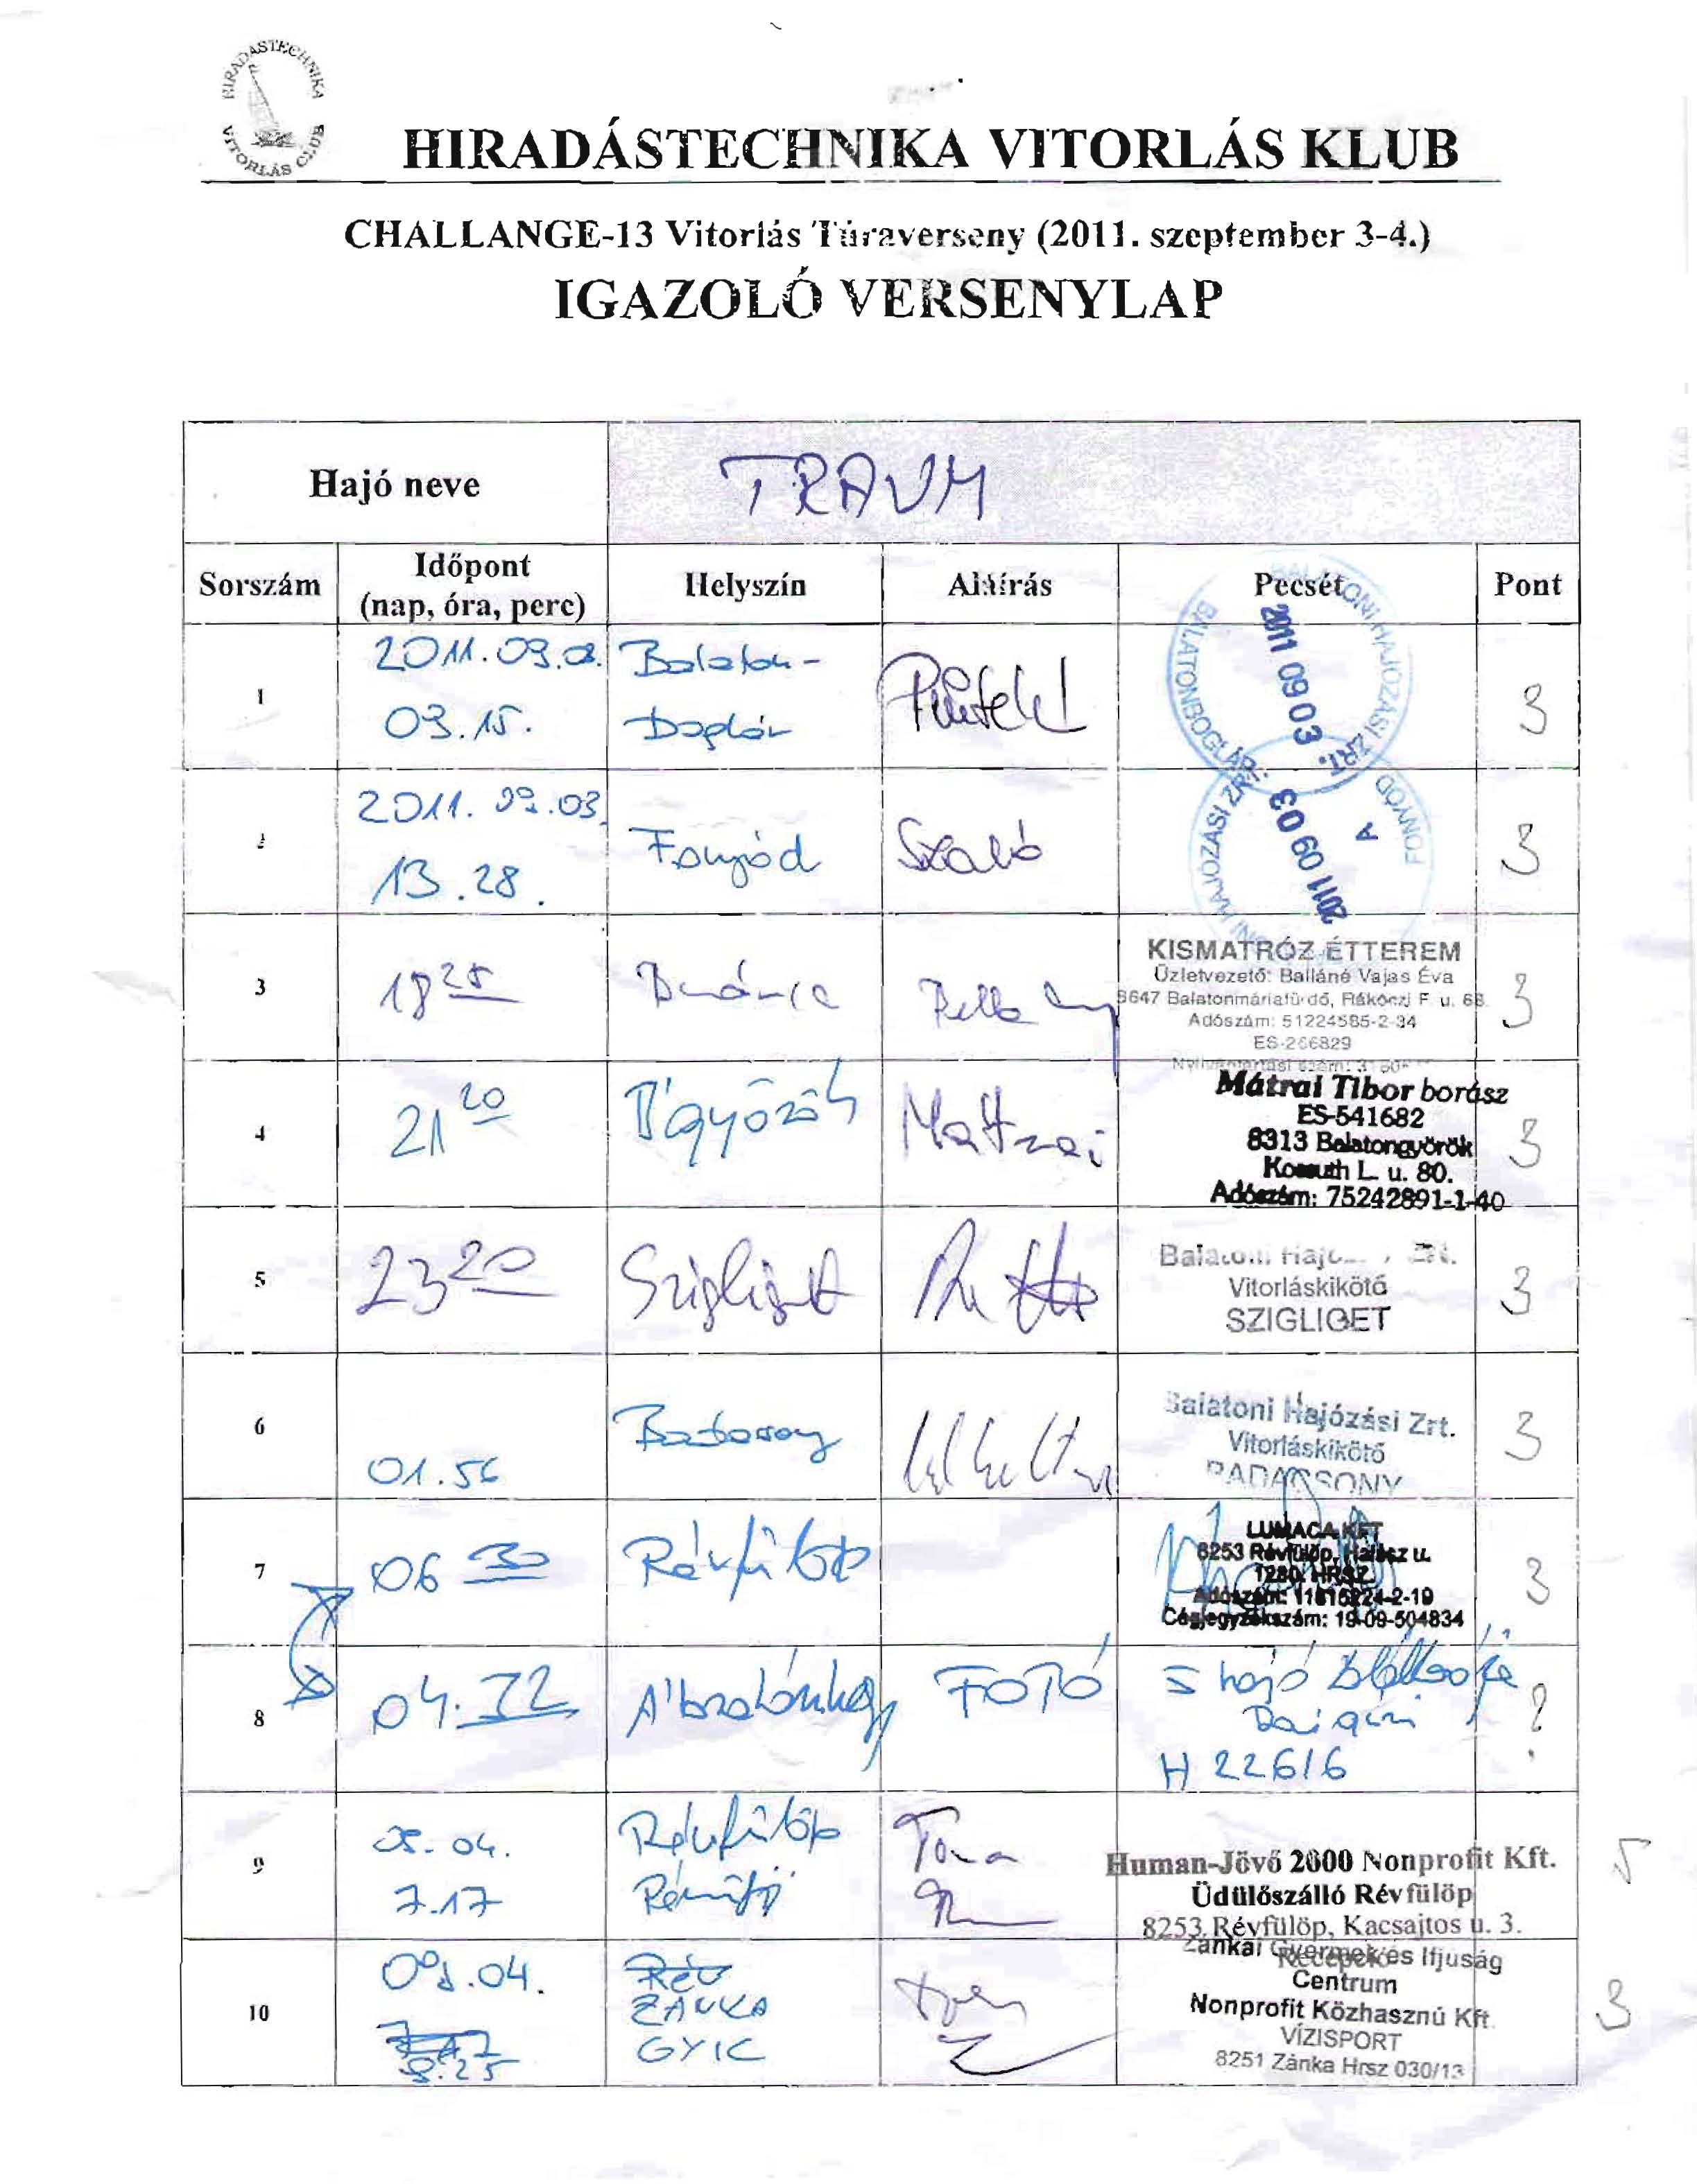 HIRADÁSTECHNIKA
VITORLÁS CLUB
HIRADÁSTECHNIKA VITORLÁS KLUB
CHALLANGE-13 Vitorlás Túraverseny (2011. szeptember 3-4.)
IGAZOLÓ VERSENYLAP
Hajó neve
TRAUM
Sorszám
Időpont
(nap, óra, perc)
Helyszín
Aláírás
Pecsét
Pont
1
2011.09.03.
09.15.
Balaton-
Boglár
BALATONI HAJÓZÁSI ZRT.
BALATONBOGLÁR
2011 09 03
3
2
2011. 09.03.
13.28.
Fonyód
Szabó
HAJÓZÁSI ZRT.
FONYÓD
A
2011 09 03
3
3
18 25
KISMATRÓZ ÉTTEREM
Üzletvezető: Balláné Vajas Éva
8647 Balatonmáriafürdő, Rákóczi F. u. 68.
Adószám: 51224585-2-34
ES-266829
3
4
21 20
B'györök
Mátrai
Mátrai Tibor borász
ES-541682
8313 Balatongyörök
Kossuth L. u. 80.
Adószám: 75242891-1-40
3
5
23 20
Szigliget
Vitorláskikötő
SZIGLIGET
3
6
01.56
Badacsony
Balatoni Hajózási Zrt.
Vitorláskikötő
BADACSONY
3
7
06 30
Révfülöp
LUMACA KFT
8253 Révfülöp, Halász u.
1280. HRSZ
Adószám: 11815224-2-19
Cégjegyzékszám: 19-09-504834
3
8
04.32
Ábrahámhegy
FOTÓ
5 hajó
H 22616
?
9
09.04.
7.17
Révfülöp
Révfülöp
Human-Jövő 2000 Nonprofit Kft.
Üdülőszálló Révfülöp
8253 Révfülöp, Kacsajtos u. 3.
5
10
09.04.
8.25
Rév
ZÁNKA
GYIC
Zánkai Gyermek és Ifjuság
Centrum
Nonprofit Közhasznú Kft.
VÍZISPORT
8251 Zánka Hrsz 030/13
3